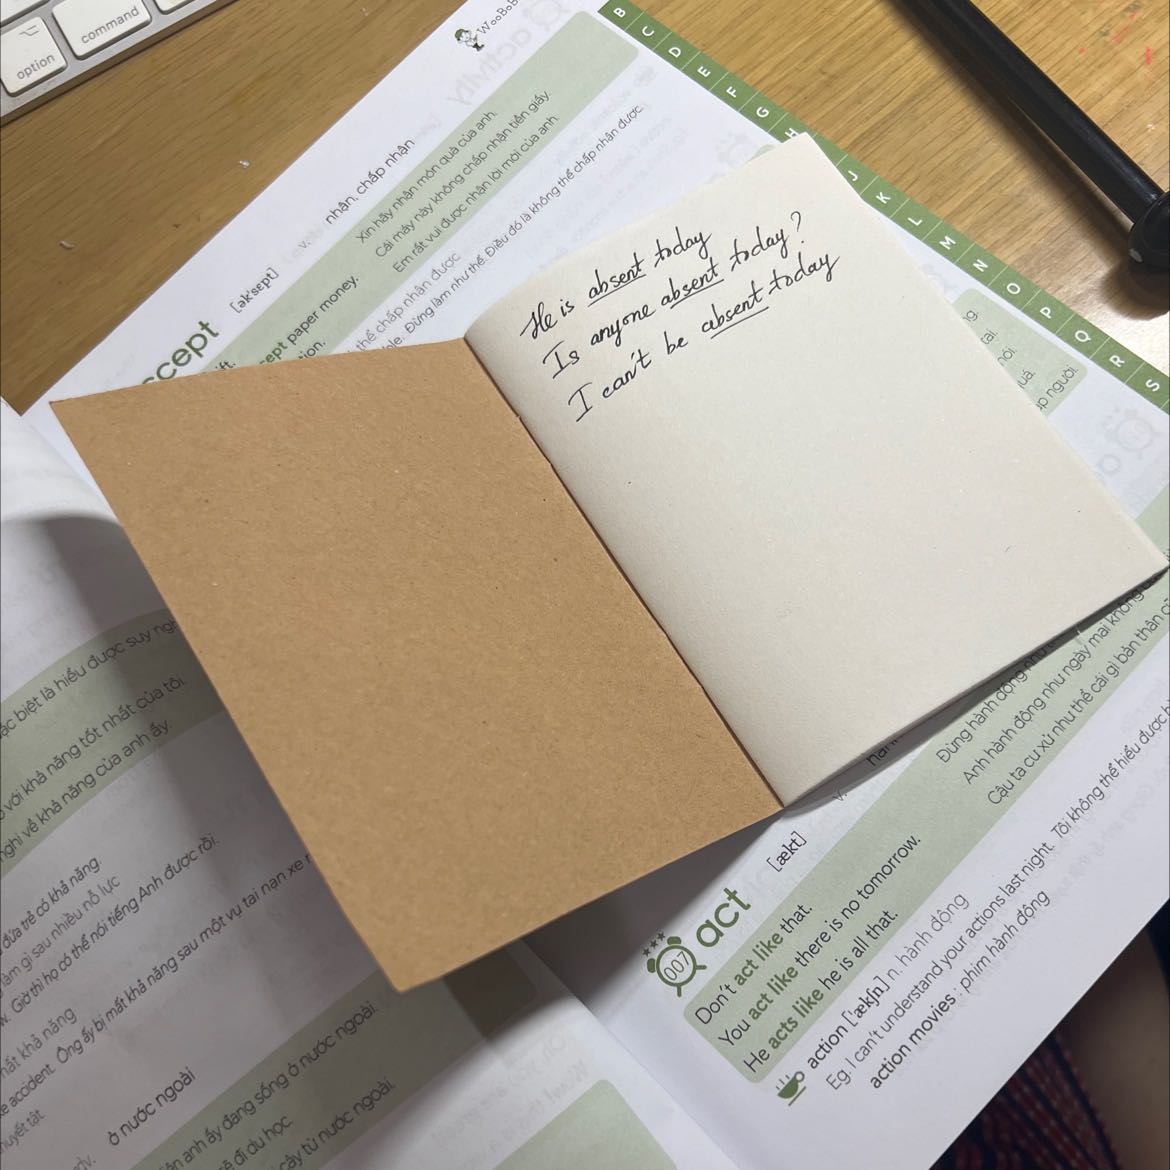 option
command
WooBoB
B C D E F G H J K L M N O P Q R S
accept [ək'sept] v. nhận, chấp nhận
Xin hãy nhận món quà của anh.
paper money. Cái máy này không chấp nhận tiền giấy.
Em rất vui được nhận lời mời của anh.
thể chấp nhận được
Đừng làm như thế. Điều đó là không thể chấp nhận được.
He is absent today
Is anyone absent today?
I can't be absent today
biệt là hiểu được suy
với khả năng tốt nhất của tôi.
nghi về khả năng của anh ấy.
đứa trẻ có khả năng
làm gì sau nhiều nỗ lực
Giờ thì họ có thể nói tiếng Anh được rồi.
mất khả năng
accident. Ông ấy bị mất khả năng sau một vụ tai nạn xe
khuyết tật
ở nước ngoài
anh ấy đang sống ở nước ngoài.
đi du học.
từ nước ngoài.
007 act [ækt] v.
Don't act like that. Đừng hành động như
You act like there is no tomorrow. Anh hành động như ngày mai không
He acts like he is all that. Cậu ta cư xử như thể cái gì bản thân
action ['ækʃn] n. hành động
Eg. I can't understand your actions last night. Tôi không thể hiểu được
action movies : phim hành động